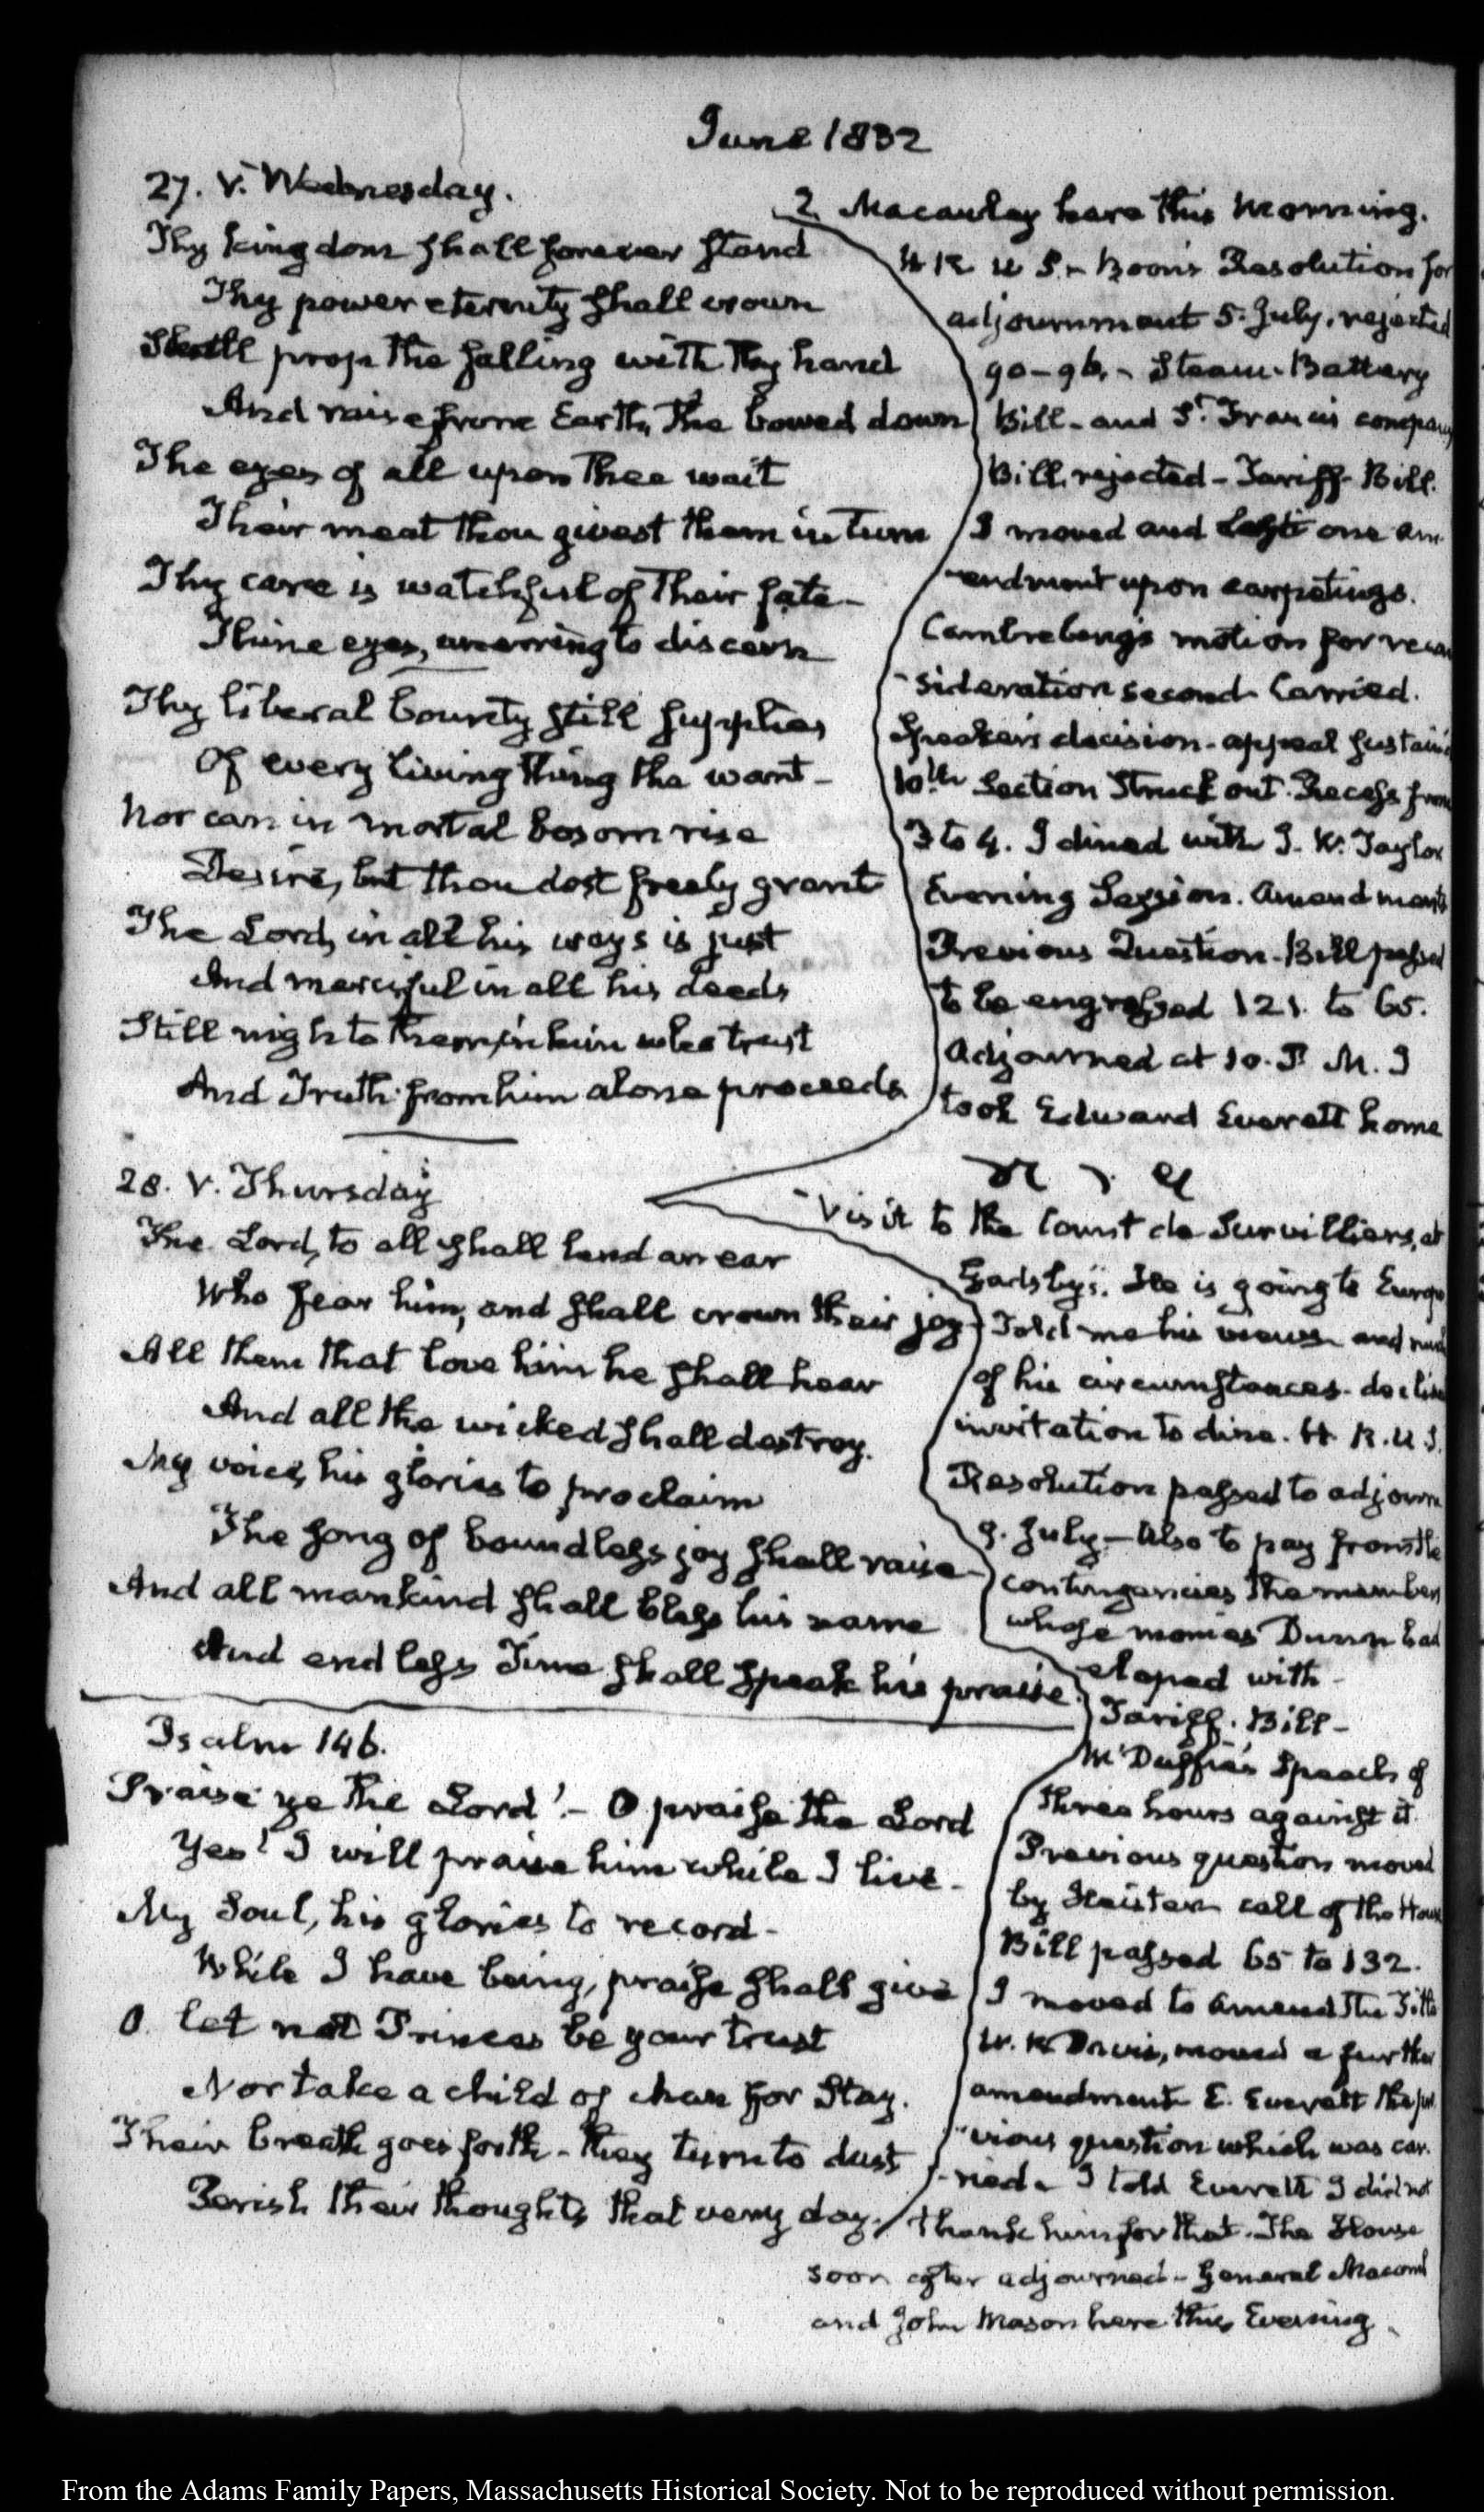 June 1832
27. V. Wednesday.
Thy kingdom shall forever stand
Thy power eternity shall crown
Shall prop the falling with thy hand
And raise from Earth, the bowed down
The eyes of all upon Thee wait
Their meat thou givest them in turn
Thy care is watchful of their fate—
Thine eyes, unerring to discern
Thy liberal bounty still supplies
Of every living thing the want—
Nor can in mortal bosom rise
Desire, but thou dost freely grant
The Lord, in all his ways is just
And merciful in all his deeds
Still nigh to them, in him who trust
And Truth from him alone proceeds
2. Macauley here this Morning.
H R U S. Boon's Resolution for
adjournment 5. July. rejected
90-96. Steam-Battery
Bill- and St. Francis company
Bill, rejected- Tariff Bill.
I moved and lost one am-
-endment upon carpetings.
Cambreleng's motion for recon
-sideration second carried.
Speaker's decision- appeal sustain'd
10th Section Struck out. Recess from
3 to 4. I dined with J. W. Taylor
Evening Session. Amendments
Previous Question- Bill passed
to be engrossed 121. to 65.
Adjourned at 10. P. M. I
took Edward Everett home
28. V. Thursday
The Lord, to all shall lend an ear
Who fear him, and shall crown their joy
All them that love him he shall hear
And all the wicked shall destroy.
My voice, his glories to proclaim
The song of boundless joy shall raise
And all mankind shall bless his name
And endless Time shall speak his praise.
Psalm 146.
Praise ye the Lord!- O praise the Lord
Yes! I will praise him while I live-
My Soul, his glories to record-
While I have being, praise shall give
O let not Princes be your trust
Nor take a child of Man for Stay.
Their breath goes forth- they turn to dust
Perish their thoughts that very day.
Visit to the Count de Survilliers, at
Gadsby's. He is going to Europe
Told me his views and much
of his circumstances- decline
invitation to dine. H. R. U. S.
Resolution passed to adjourn
9. July- Also to pay from the
contingencies the members
whose monies Dunn had
eloped with-
Tariff. Bill-
McDuffie's Speech of
three hours against it.
Previous question moved
by Heister call of the House
Bill passed 65 to 132.
I moved to amend the Title
W. R Davis, moved a further
amendment E. Everett the pre
-vious question which was car-
-ried- I told Everett I did not
thank him for that. The House
soon after adjourned- General Macomb
and John Mason here this Evening.
From the Adams Family Papers, Massachusetts Historical Society. Not to be reproduced without permission.